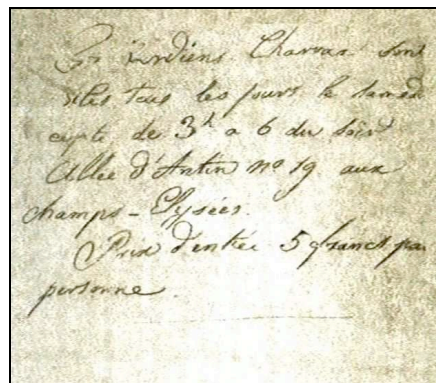 indiens Charuas sont
tous les jours le samedi
cepté de 3h a 6 du soir
Allée d'Antin no 19 aux
champs-Elysées.
Prix d'entrée 5 francs par
personne.